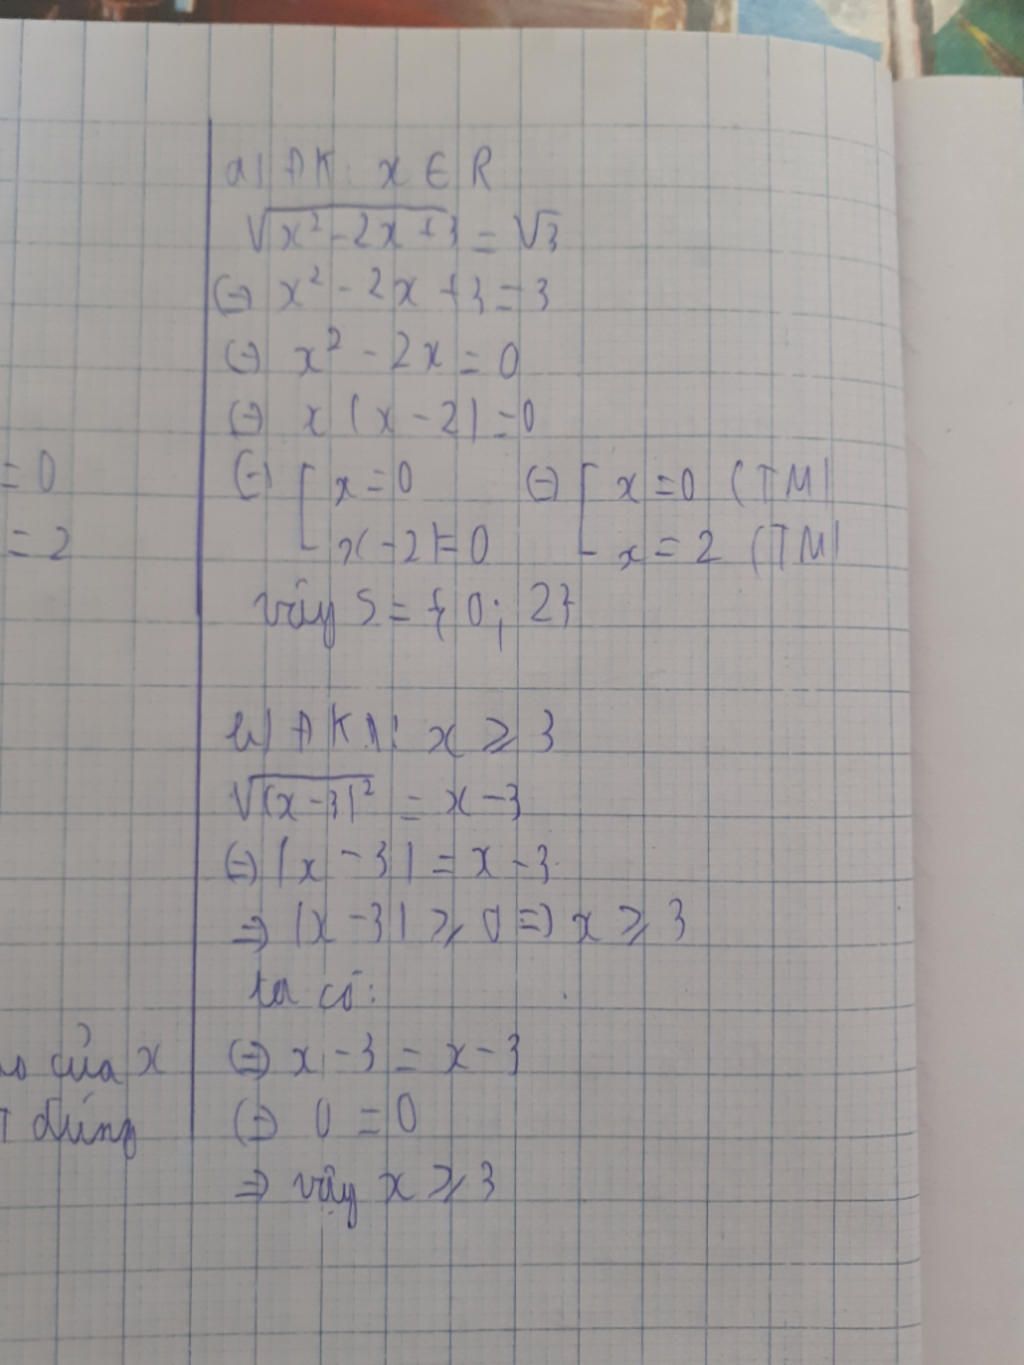 = 0
= 2
của x
đúng
a) ĐK: x ∈ R
√(x² - 2x + 3) = √3
(=) x² - 2x + 3 = 3
(=) x² - 2x = 0
(=) x (x - 2) = 0
(=) [ x = 0 (=) [ x = 0 (TM)
x - 2 = 0 x = 2 (TM)
vậy S = { 0; 2}
b) ĐKXĐ: x ⩾ 3
√(x - 3)² = x - 3
(=) |x - 3| = x - 3
=> |x - 3| ⩾ 0 => x ⩾ 3
ta có:
(=) x - 3 = x - 3
(=) 0 = 0
=> vậy x ⩾ 3